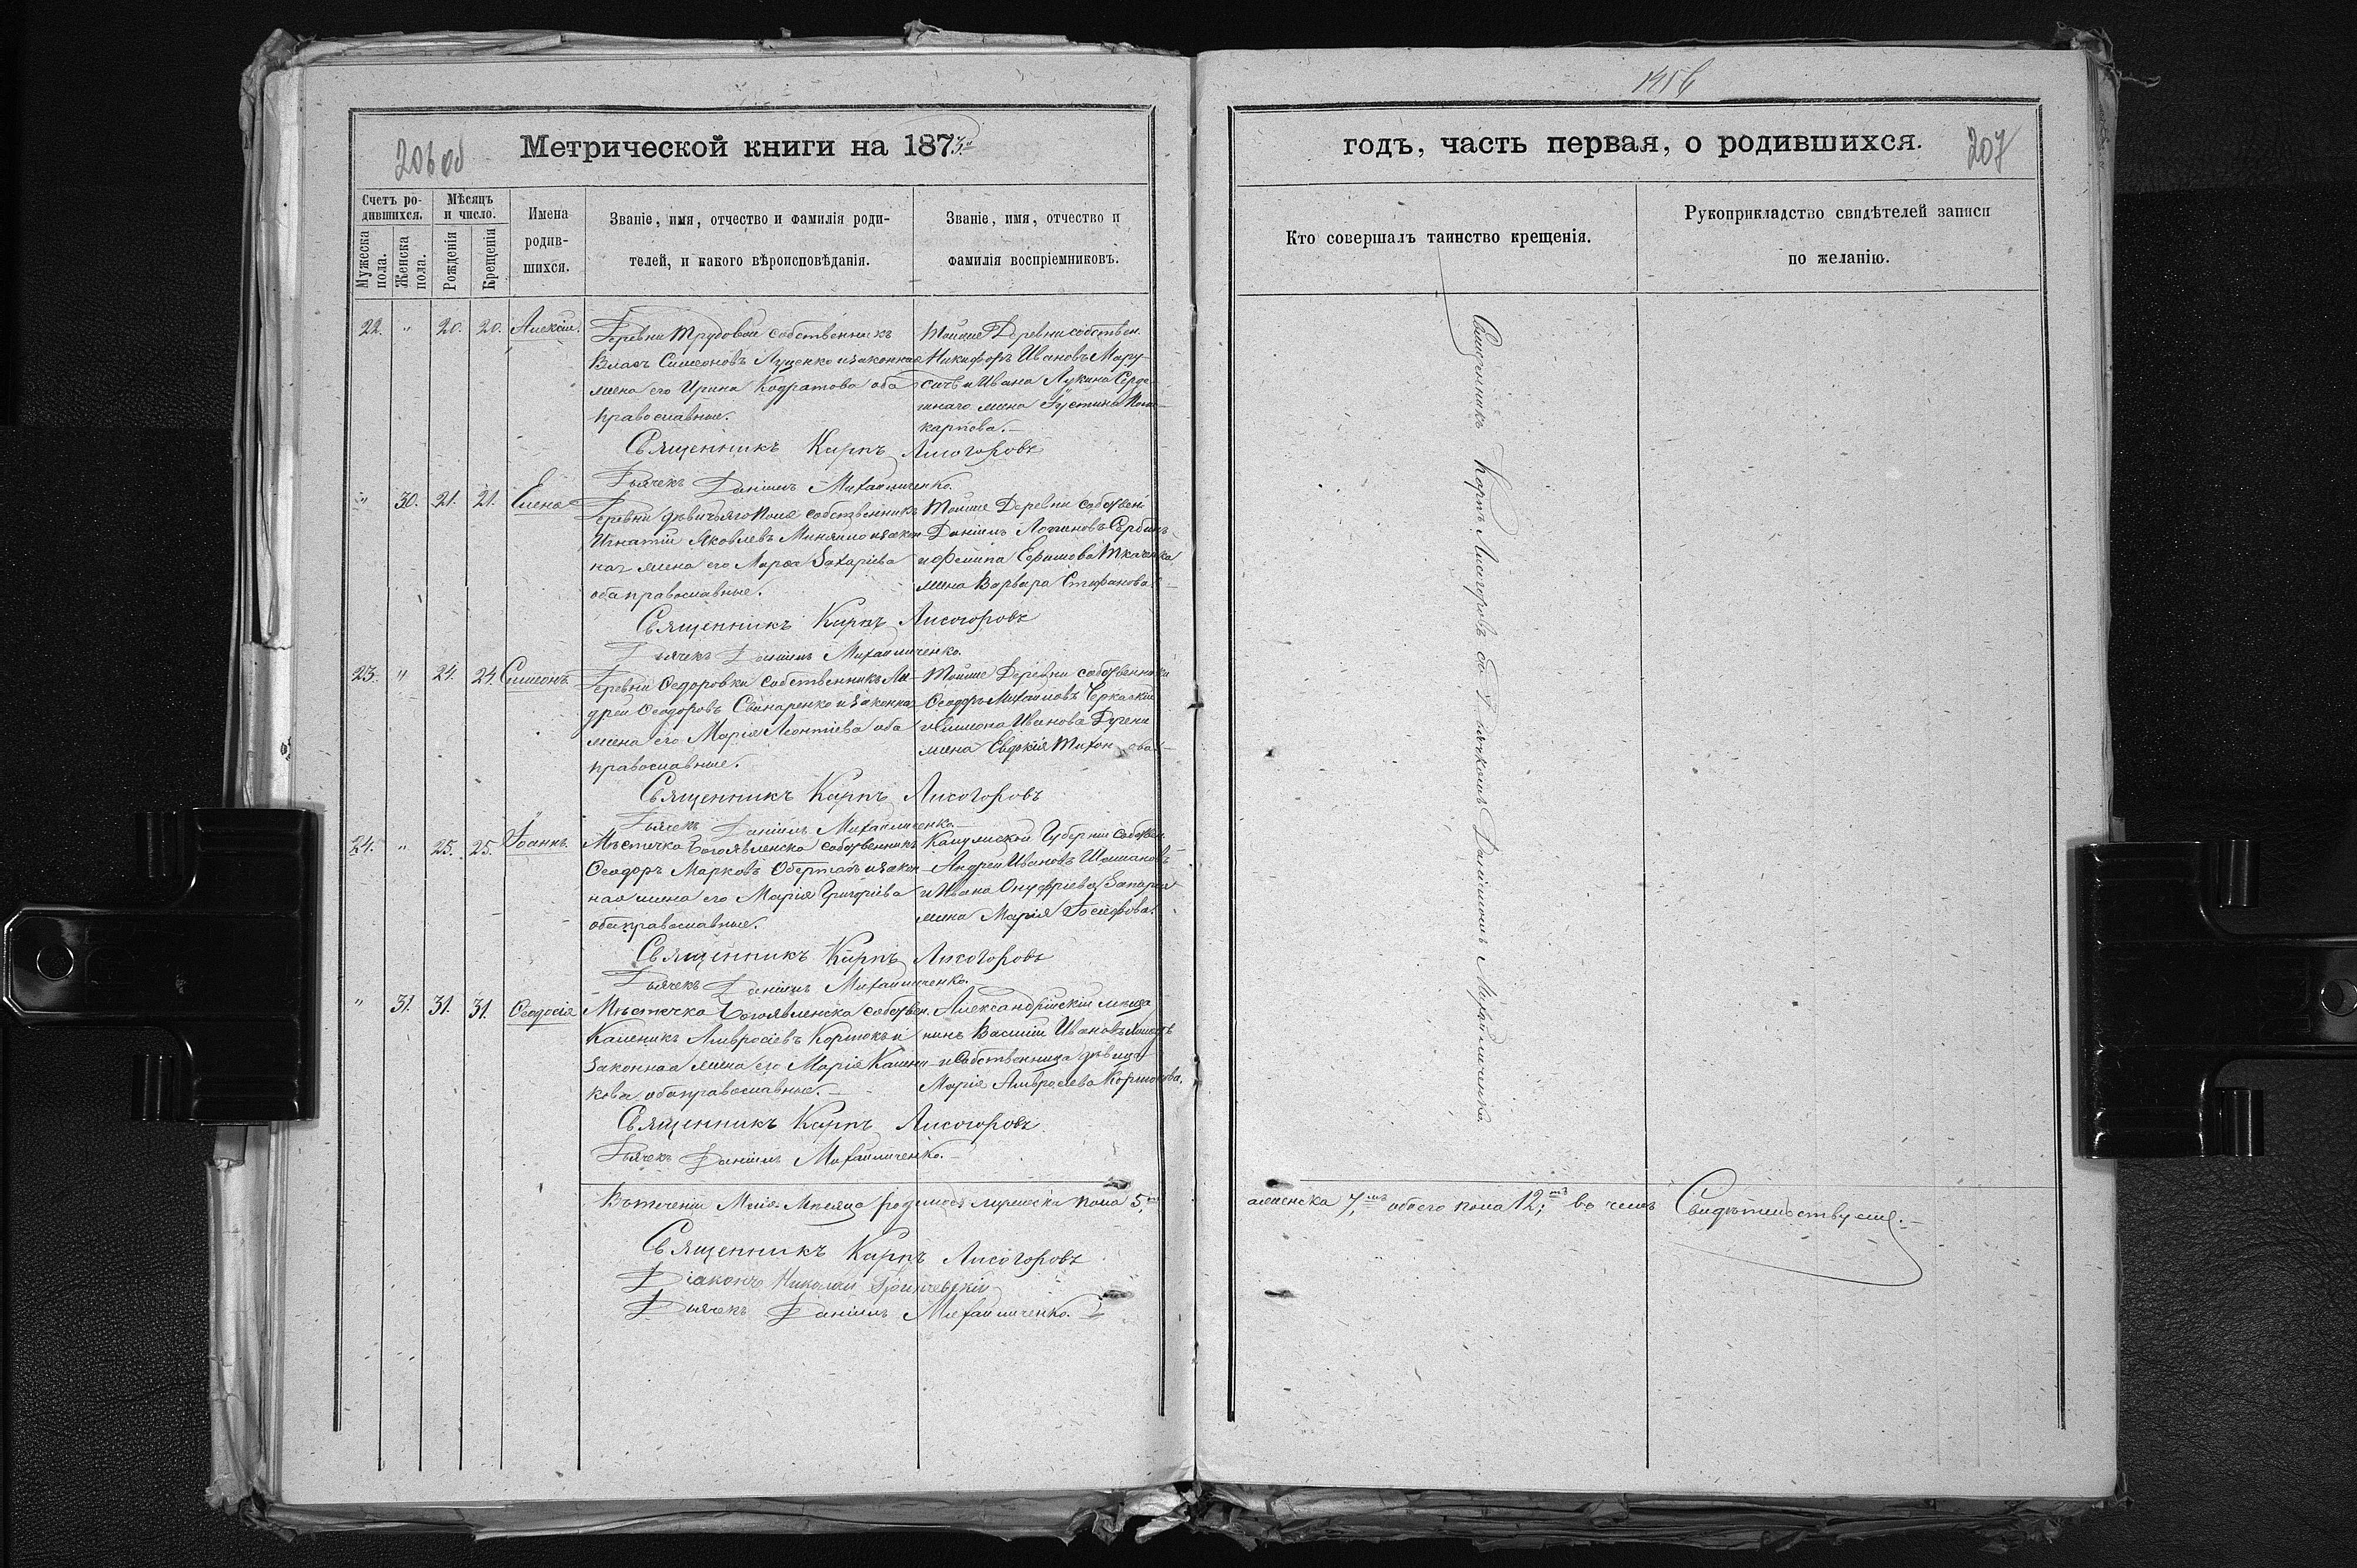 206 об
Метрической книги на 1873.
Счетъ ро-
дившихся.
Мѣсяцъ
и число.
Мужеска
пола.
Женска
пола.
Рожденія
Крещенія
Имена
родив-
шихся.
Званіе, имя, отчество и фамилія роди-
телей, и какого вѣроисповѣданія.
Званіе, имя, отчество и
фамилія воспріемниковъ.
22. " 20. 20. Алексій.
Деревни Трудовой собственникъ
Власъ Симеоновъ Луценко и законная
жена его Ирина Кодратова оба
православные.
Тойже Деревни собствен.
Никифоръ Ивановъ Мару-
сичъ и Ивана Лукина Серде-
шнаго жена Іустина Поли-
карпова.
Священникъ Карпъ Лисогоровъ
Дьячекъ Даніилъ Михайличенко.
" 30. 21. 21. Елена
Деревни дѣвичьяго Поля собственникъ
Игнатій Яковлевъ Миняйло и закон-
ная жена его Марѳа Захаріева
оба православные.
Тойже Деревни собствен.
Даніилъ Логиновъ Сербинъ
и Филипа Ефимова Ткаченка
жена Варвара Стефанова.
Священникъ Карпъ Лисогоровъ
Дьячекъ Даніилъ Михайличенко.
23. " 24. 24. Симеонъ.
Деревни Ѳедоровки собственникъ Ан-
дрей Ѳеодоровъ Свинаренко и законная
жена его Марія Леонтіева оба
православные.
Тойже Деревни собственники
Ѳеодоръ Михайловъ Черкаскій
и Симеона Иванова
жена Евдокія Тихонова.
Священникъ Карпъ Лисогоровъ
Дьячекъ Даніилъ Михайличенко.
24. " 25. 25. Іоаннъ.
Мѣстечка Богоявленска собственникъ
Ѳеодоръ Марковъ и закон-
ная жена его Марія Григоріева
оба православные.
Калужской Губерніи собствен.
Андрей Ивановъ
и Ивана Онуфріева
жена Марія Іосифова.
Священникъ Карпъ Лисогоровъ
Дьячекъ Даніилъ Михайличенко.
" 31. 31. 31. Ѳеодосія
Мѣстечка Богоявленска собствен.
Калиникъ Амвросіевъ и
законная жена его Марія Калини-
кова оба православные.
Александрійскій мѣща-
нинъ Василій Ивановъ
и Собственница дѣвица
Марія Амвросіева
Священникъ Карпъ Лисогоровъ
Дьячекъ Даніилъ Михайличенко.
Въ теченіи Маія Мѣсяца родилось мужеска пола 5,
Священникъ Карпъ Лисогоровъ
Діаконъ Николай
Дьячекъ Даніилъ Михайличенко.
годъ, часть первая, о родившихся.
207
Кто совершалъ таинство крещенія.
Рукоприкладство свидѣтелей записи
по желанію.
Священникъ Карпъ Лисогоровъ съ Дьячкомъ Даніиломъ Михайличенко.
а женска 7, обоего пола 12; въ чемъ Свидѣтельствуемъ.